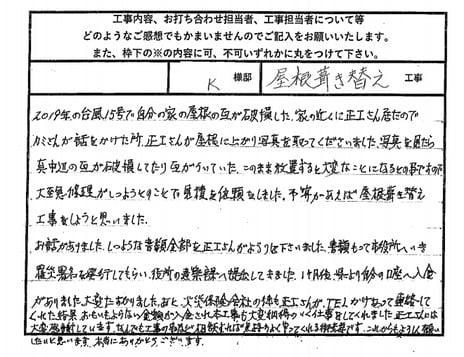 工事内容、お打ち合わせ担当者、工事担当者について等
どのようなご感想でもかまいませんのでご記入をお願いいたします。
また、枠下の※の内容に可、不可いずれかに丸をつけて下さい。
K 様邸 屋根葺き替え 工事
2019年の台風15号で自分の家の屋根の瓦が破損した。家の近くに正工さん居たので
カミさんが話をかけた所、正工さんが屋根に上がり写真を取ってくださいました。写真を見たら
真中辺の瓦が破損してたり瓦がういていた。このまま放置すると大変なことになるとの事ですので
修理がしつようとのことで見積を依頼をしました。予算があえば屋根葺き替え
工事をしようと思いました。
お話がありました。しつような書類全部を正工さんがよういを下さいました。書類もって市役所へいき
罹災署名を発行してもらい、役所の建築課へ提出してきました。1ケ月後、県より
がありました。大変たすかりました。あと、火災保険会社の件も正工さんが、TELがかかって連絡して
くれた結果、おもいもよらない金額が入金され
大変感謝しています。
したいと思います。本当にありがとうございます。